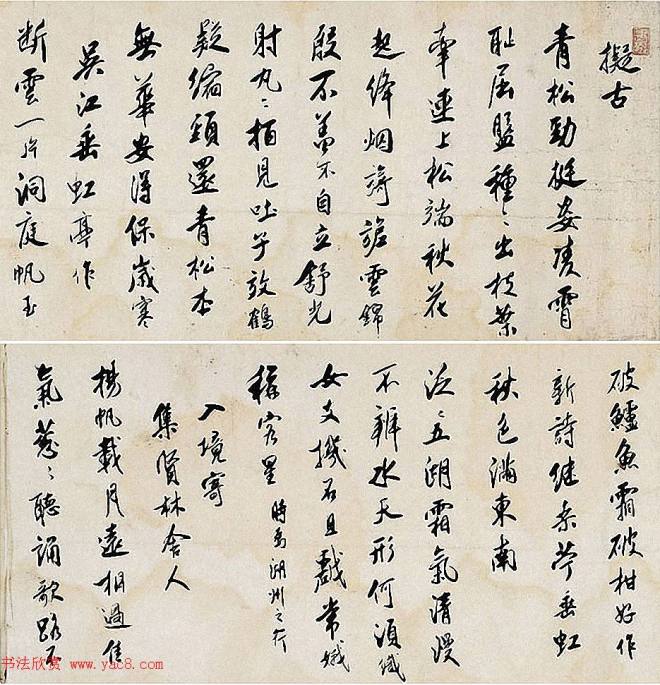 擬古
青松勁挺姿凌霄
耻屈盤種〻出枝葉
牽連上松端秋花
起絳烟旖旎雲錦
殷不羞不自立舒光
射丸〻栢見吐子效鶴
疑縮頸還青松本
無華安得保歲寒
吳江垂虹亭作
断雲一片洞庭帆玉
破鱸魚霜破柑好作
新詩継桑苧垂虹
秋色滿東南
泛〻五湖霜氣清漫
不辨水天形何須織
女支機石且戲常娥
稱客星 時為湖州之行
入境寄
集賢林舍人
揚帆載月遠相過佳
氣蔥〻聽誦歌路不
书法欣赏 www.yac8.com